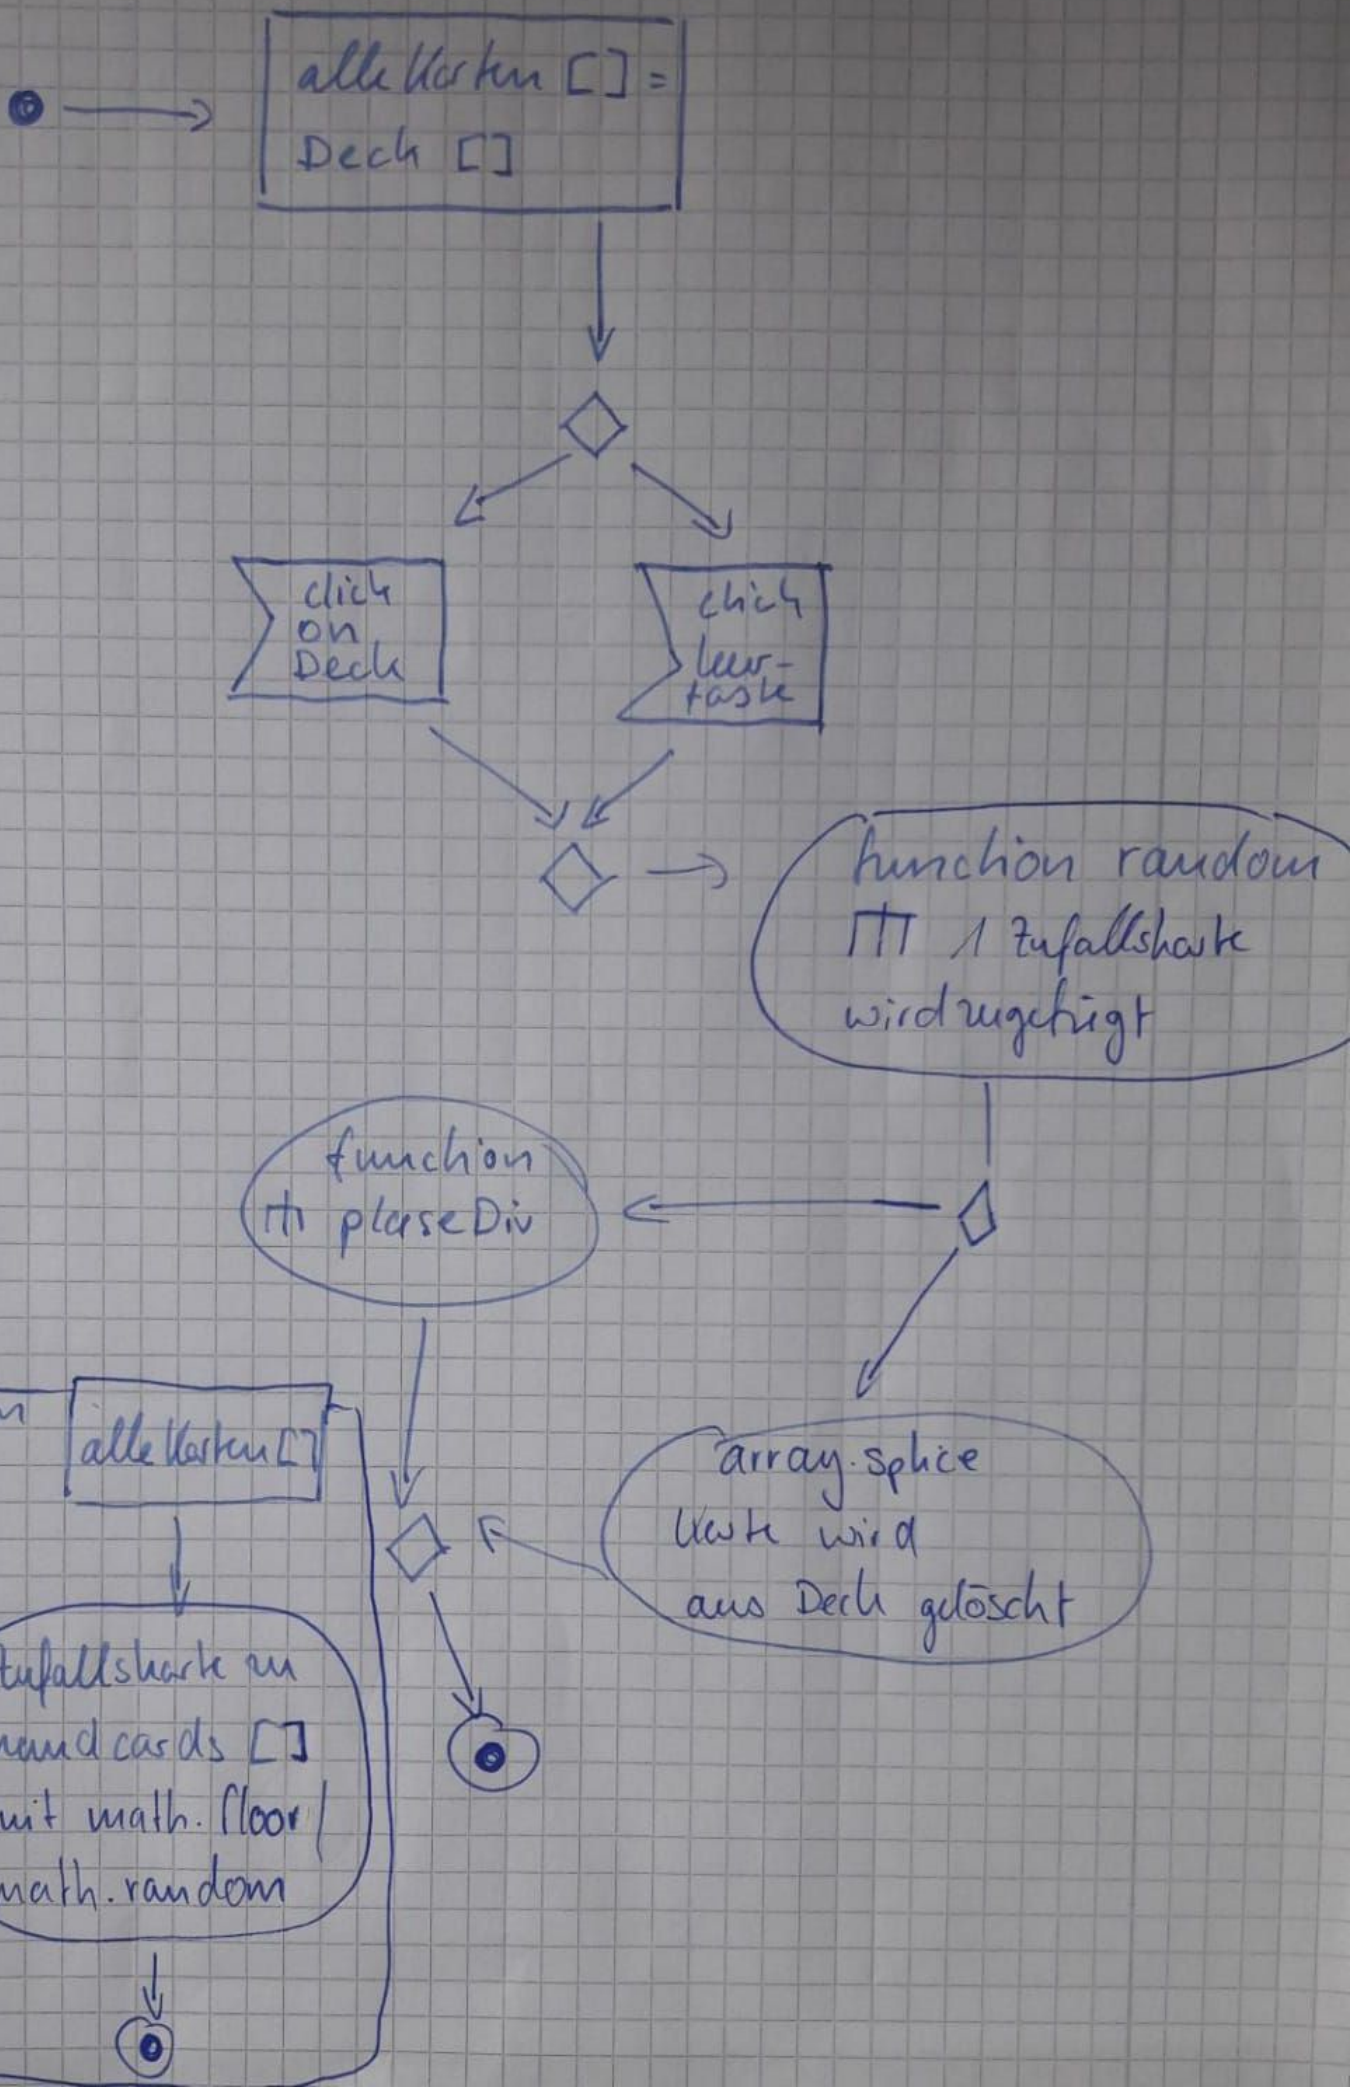 alleKarten [] =
Deck []
click
on
Deck
click
leer-
taste
function random
1 Zufallskarte
wird zugefügt
function
plaseDiv
alleKarten []
array.splice
Karte wird
aus Deck gelöscht
Zufallskarte zu
handcards []
mit math.floor/
math.random